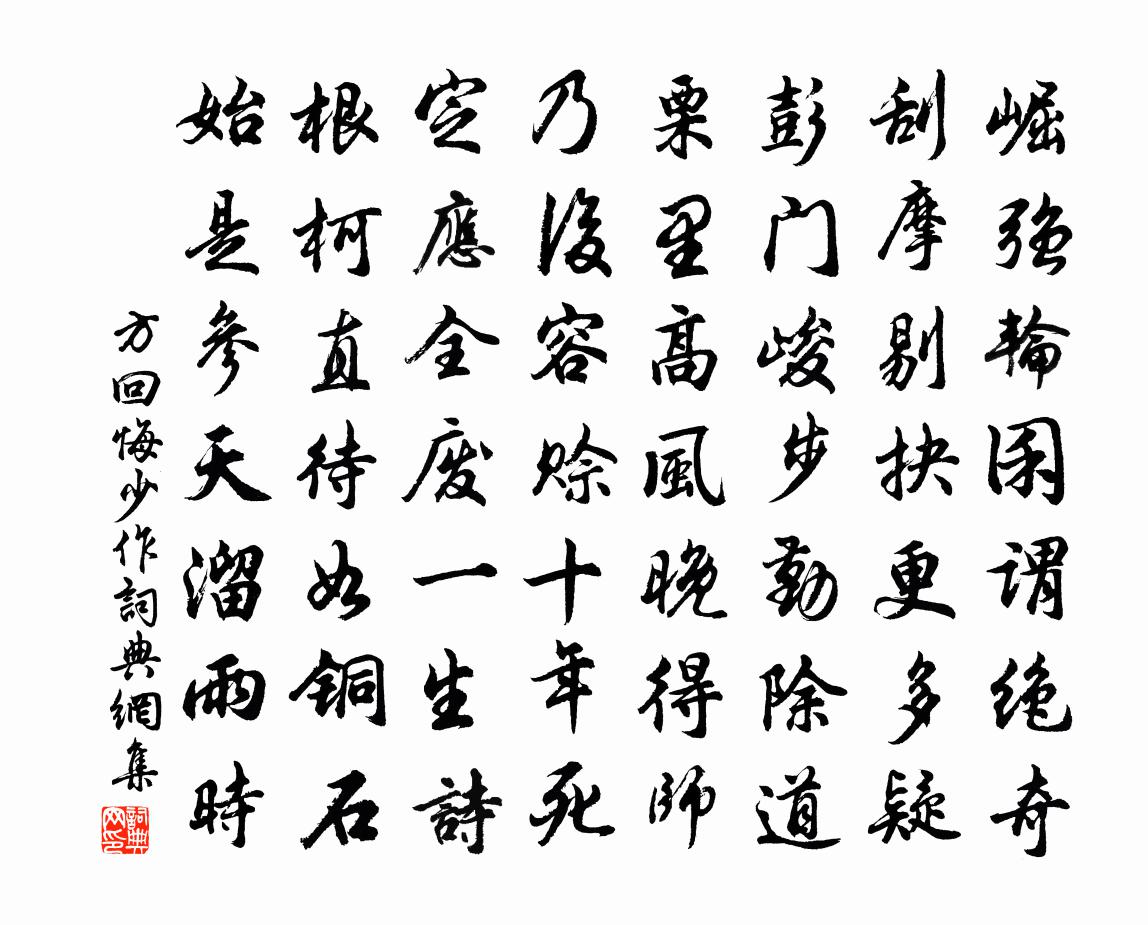 崛强輪囷谓绝奇
刮摩剔抉更多疑
彭门峻步勤除道
栗里高風晚得師
乃後容赊十年死
定應全废一生詩
根柯直待如铜石
始是參天溜雨時
方回悔少作詞典網集
詞典网印